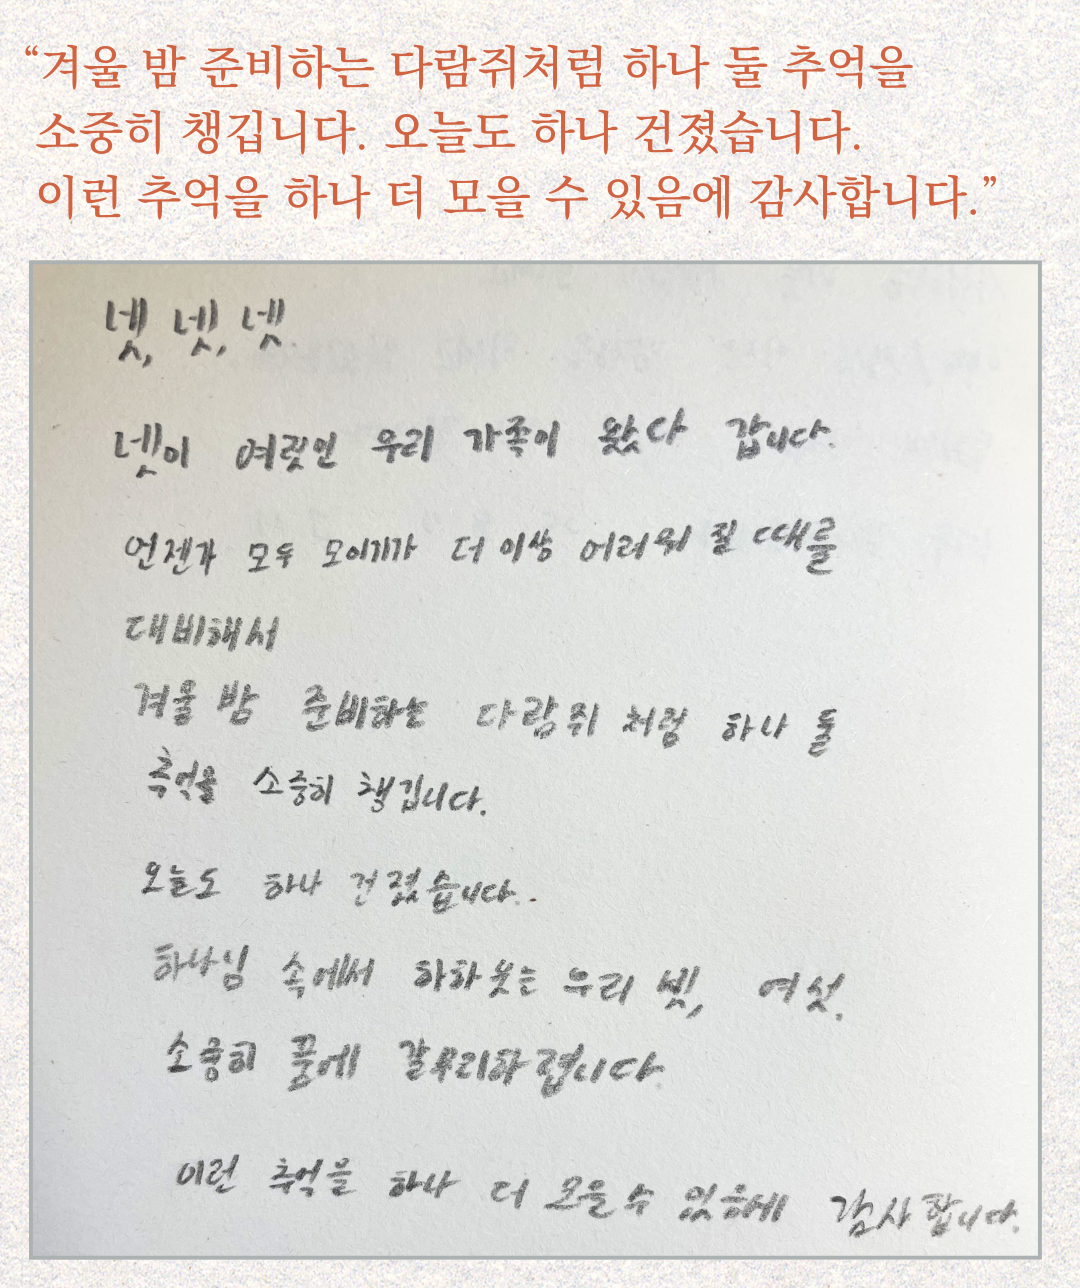 “겨울 밤 준비하는 다람쥐처럼 하나 둘 추억을
소중히 챙깁니다. 오늘도 하나 건졌습니다.
이런 추억을 하나 더 모을 수 있음에 감사합니다.”
넷, 넷, 넷.
넷이 여럿인 우리 가족이 왔다 갑니다.
언젠가 모두 모이기가 더 이상 어려워 질 때를
대비해서
겨울 밤 준비하는 다람쥐 처럼 하나 둘
추억을 소중히 챙깁니다.
오늘도 하나 건졌습니다..
하나님 속에서 하하 웃는 우리 넷, 여섯.
소중히 꿈에 갈무리하렵니다.
이런 추억을 하나 더 모을 수 있음에 감사합니다.